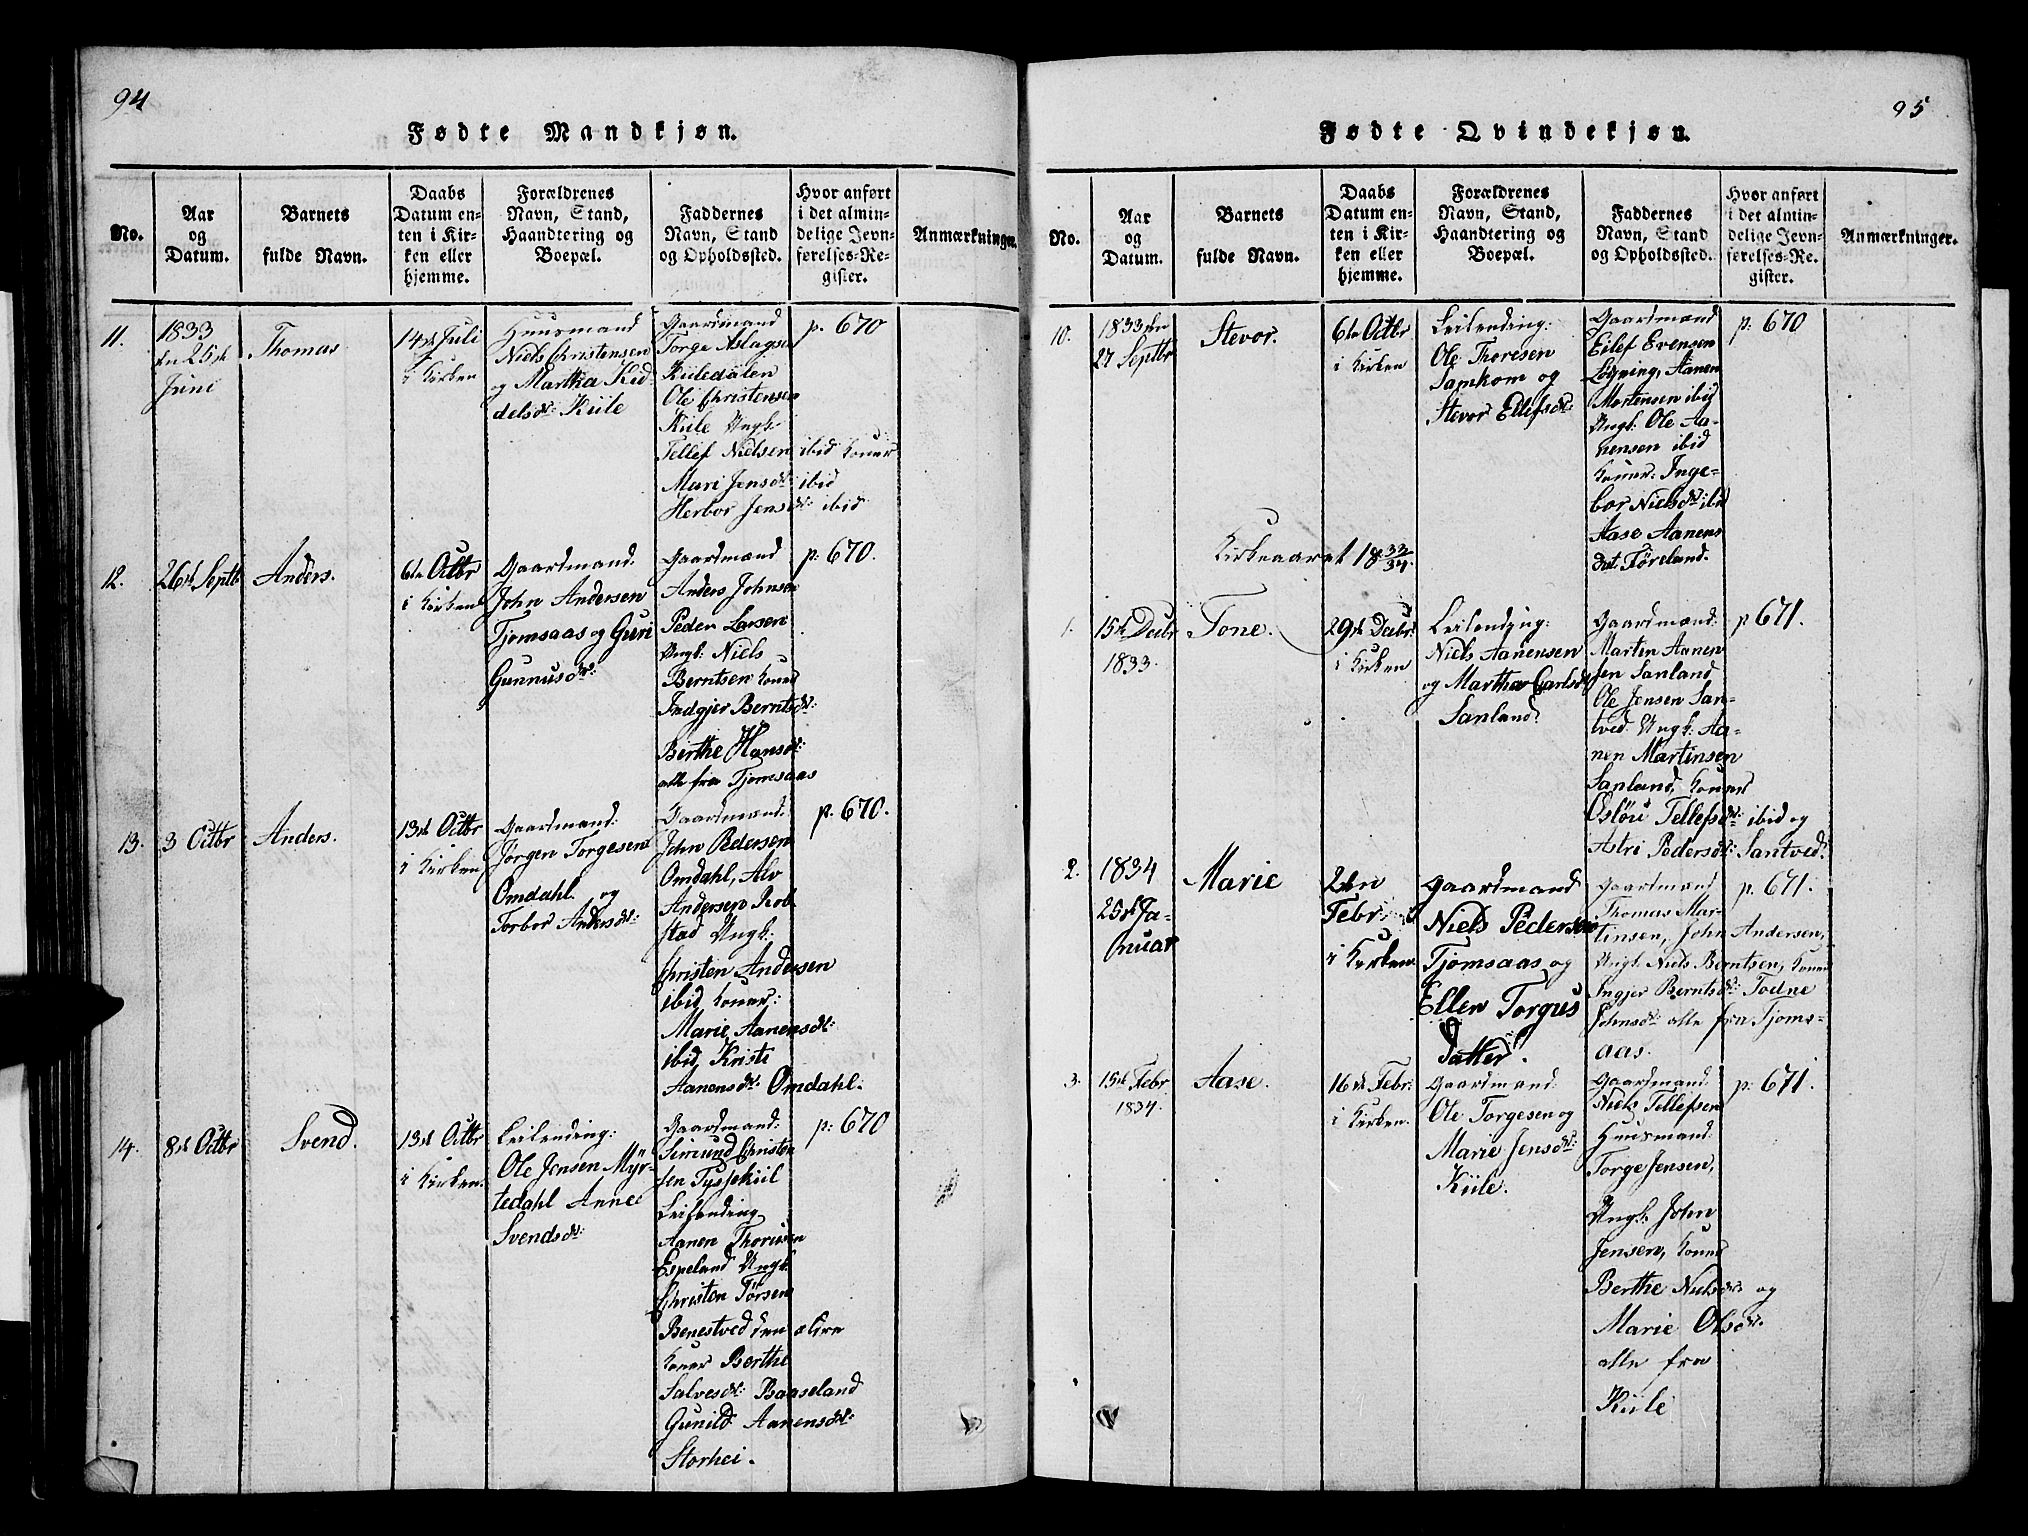 94
Fødte Mandkjøn.
No.
Aar
og
Datum.
Barnets
fulde Navn.
Daabs
Datum en-
ten i Kir-
ken eller
hjemme.
Forældrenes
Navn, Stand,
Haandtering og
Boepæl.
Faddernes
Navn, Stand
og Opholdssted.
Hvor anført
i det almin-
delige Jevn-
førelses-Re-
gister.
Anmærkninger.
11.
1833
den 25de
Juni
Thomas
14de Juli
i Kirken
Huusmand
Niels Christensen
og Martha Kid
delsdtr: Kiile
Gaardmand
Torge Aslagsen
Kiiledalen
Ole Christensen
Kiile Ungk:
Tellef Nielsen ibid Koner
Mari Jensdtr: ibid
Herbor Jensdtr: ibid
p. 670
12.
26de Septb
Anders.
6te Octbr
i Kirken
Gaardmand.
John Andersen
Tjomsaas og Guri
Gunnusdtr:
Gaardmænd
Anders Johnsen
Peder Larsen
Ungk: Niels
Berntsen Koner
Indgjer Berntsdtr:
Berthe Hansdtr:
alle fra Tjomsaas
p: 670.
13.
3 Octbr
Anders.
13de Octbr
i Kirken
Gaardmand:
Jørgen Torgesen
Omdahl og
Torbor Andersdtr:
Gaardmænd:
John Pedersen
Omdahl, Alv
Andersen Rob
stad Ungk:
Christen Andersen
ibid, Koner:
Marie Aanensdtr:
ibid, Kriste
Aanensdtr: Omdahl.
p. 670.
14.
8de Octbr
Svend.
13de Octbr
i Kirken.
Leilending:
Ole Jensen Myr-
tedahl Anne
Svendsdtr:
Gaardmand:
Simund Christen
sen Tyssekiil
Leilending
Aanen Thorisen
Espeland Ungk:
Christen Tørsen
Benestved den ældre
Koner Berthe
Salvesdtr: Baaseland
Gunild Aanensdtr:
Storhei.
p: 670
95
Fødte Qvindekjøn.
No.
Aar
og
Datum.
Barnets
fulde Navn.
Daabs
Datum en-
ten i Kir-
ken eller
hjemme.
Forældrenes
Navn, Stand,
Haandtering og
Boepæl.
Faddernes
Navn, Stand
og Opholdssted.
Hvor anført
i det almin-
delige Jevn-
førelses-Re-
gister.
Anmærkninger.
10.
1833 den
27 Septbr
Stevor.
6te Octbr
i Kirken
Leilending:
Ole Thoresen
Samkom og
Stevor Eilefsdtr
Gaardmænd
Eilef Evensen
Løgning, Aanen
Mortensen ibid
Ungk: Ole Aa-
nensen ibid
Koner: Inge-
bor Nielsdtr: ibid
Aase Aanens
dat Føreland.
p. 670
Kirkeaaret 18 33/34
1.
15de Decbr
1833.
Tone.
29de Decbr:
i Kirken
Leilending:
Niels Aanensen
og Martha Carlsdtr
Sanland
Gaardmænd:
Martin Aanen
sen Sanland
Ole Jensen San-
tved Ungk: Aa-
nen Martinsen
Sanland, Koner
Osløu Tellefsdtr: ibid og
Astri Pedersdtr: Santved.
p 671.
2.
1834
25de Ja-
nuar
Marie
2den
Febr:
i Kirken
Gaardmand
Niels Pedersen
Tjomsaas og
Ellen Torgus
Datter.
Gaardmænd
Thomas Mar-
tinsen, John Andersen,
Ungk: Niels Berntsen, Koner
Ingjer Berntsdtr: Todne
Johnsdtr alle fra Tjoms-
aas.
p. 671.
3.
15de Febr
1834.
Aase.
16de Febr:
i Kirken.
Gaardmand:
Ole Torgesen og
Marie Jensdtr:
Kiile.
Gaardmand:
Niels Tellefsen
Huusmand:
Torge Jensen,
Ungk: John
Jensen, Koner
Berthe Nielsdtr og
Marie Olsdtr.
alle fra
Kiile
p: 671.